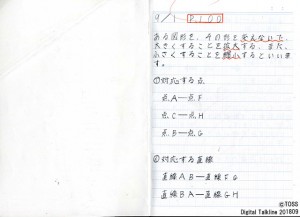 9/1 P.100
ある図形を、その形を変えないで、
大きくすることを拡大する、また、
小さくすることを縮小するといいま
す。
①対応する点
点A―点F
点C―点H
点B―点G
②対応する直線
直線AB―直線FG
直線BA―直線GH
©TOSS
Digital Talkline 201809